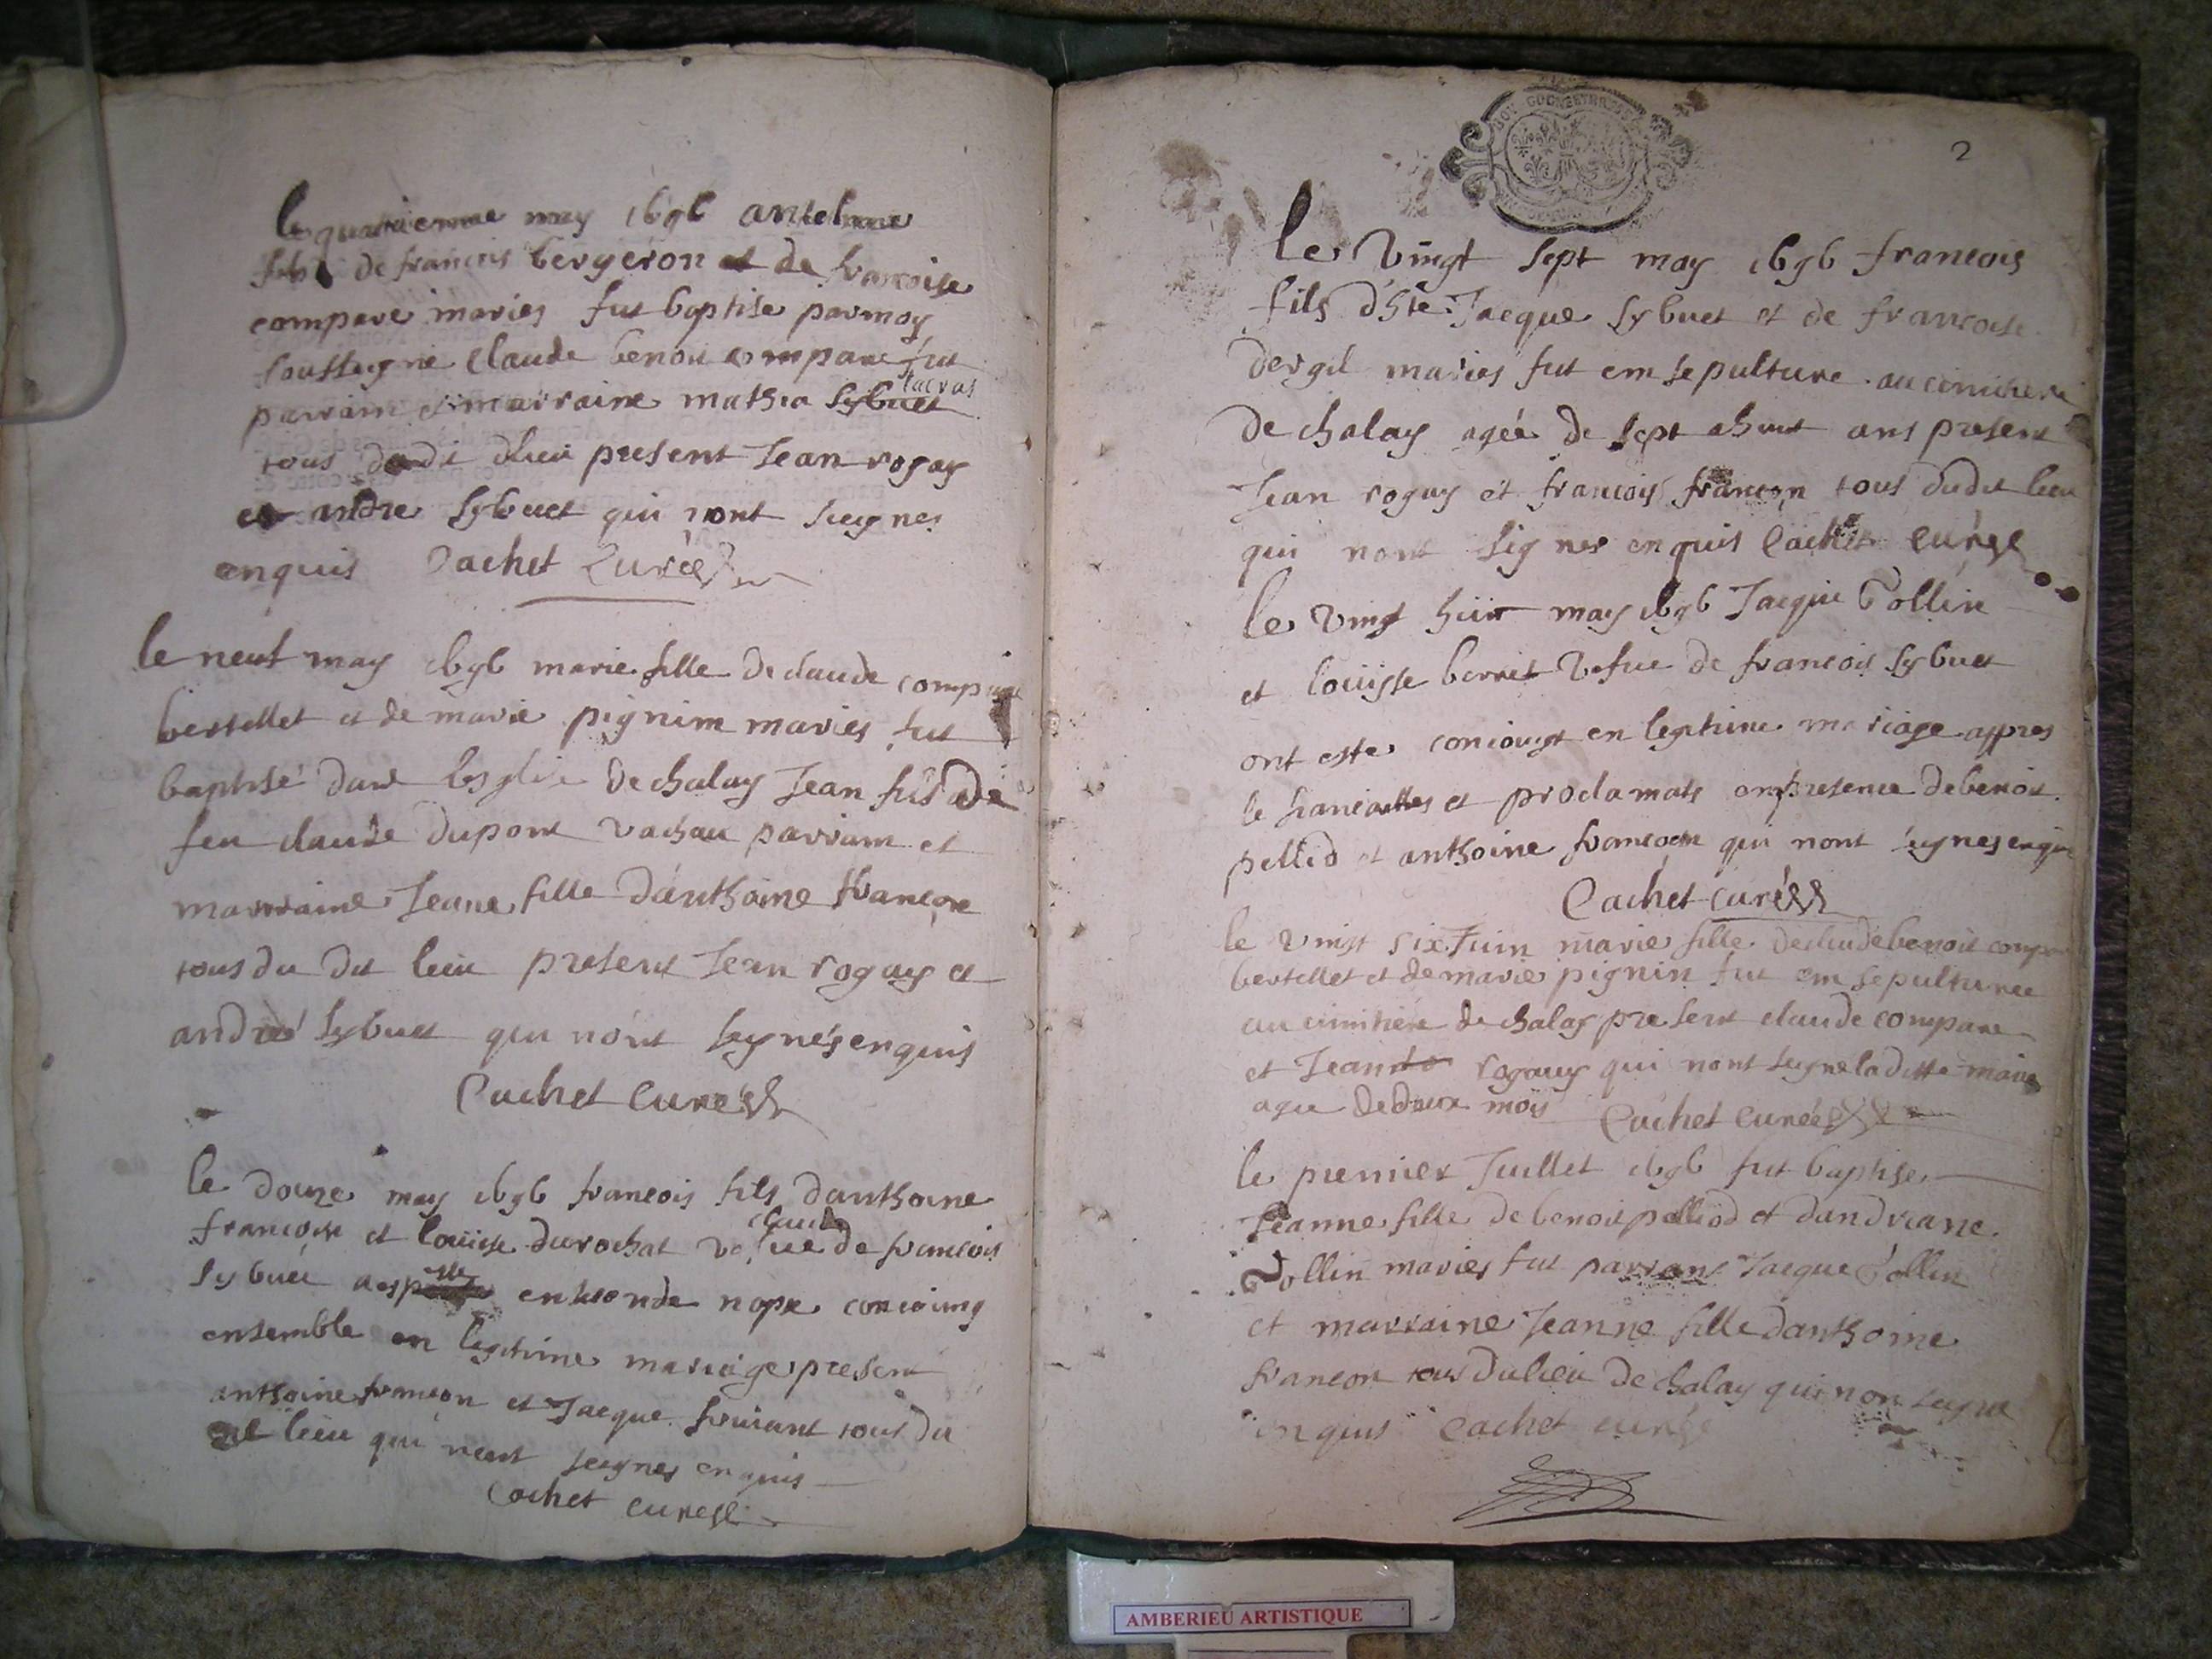 le quatriemme may 1696 antelme
fils de francois bergeron et de francoise
compare maries fut baptise par moy
soussigne claude benoit compare fut
tacvas
parrain et marraine mathia sybuet
tous dudit dlieu present Jean rogay
et andre sybuet qui nont signes
enquis Cachet Curé
le neuf may 1696 marie fille de claude compare
bertellet et de marie pignim maries fut
baptisé dans leglise de chalay Jean fils de
feu claude dupont vachau parrain et
marraine Jeane fille danthoine françon
tous du dit lieu present Jean rogay et
andré sybuet qui nont seynés enquis
Cachet Curé
le douze may 1696 francois fils danthoine
claude
francon et louise durochat vefue de francois
sybuet en seconde nopse conioing
ensemble en legitime mariage present
anthoine francon et Jacque fruiant tous du
dit lieu qui nont seignes enquis
Cachet curé
2
le vingt sept may 1696 francois
fils d'hte Jacque sybuet et de francoise
dergil maries fut em sepulture au cimitiere
de chalay agée de sept a huit ans present
Jean rogay et francois françon tous dudit lieu
qui nont signes enquis Cachet curé
le vingt huit may 1696 Jacque Tollin
et louisse borret vefue de francois sybuet
ont este conioingt en legitime mariage appres
le fiancailles et proclamats en presence de benoit
pelliod et anthoine francon qui nont signes enquis
Cachet curé
le vingt six Juin marie fille de claude benoit compare
bertellet et de marie pignin fut em sepulturee
au cimitiere de chalay present claude compare
et Jean rogay qui nont seigne la ditte marie
agee de deux mois Cachet curé
le premier Juillet 1696 fut baptise
Jeanne fille de benoit pelliod et dandriane
Tollin maries fut parrain Jacque Tollin
et marraine Jeanne fille danthoine
francon tous du lieu de chalay qui non seigne
enquis Cachet curé
AMBERIEU ARTISTIQUE